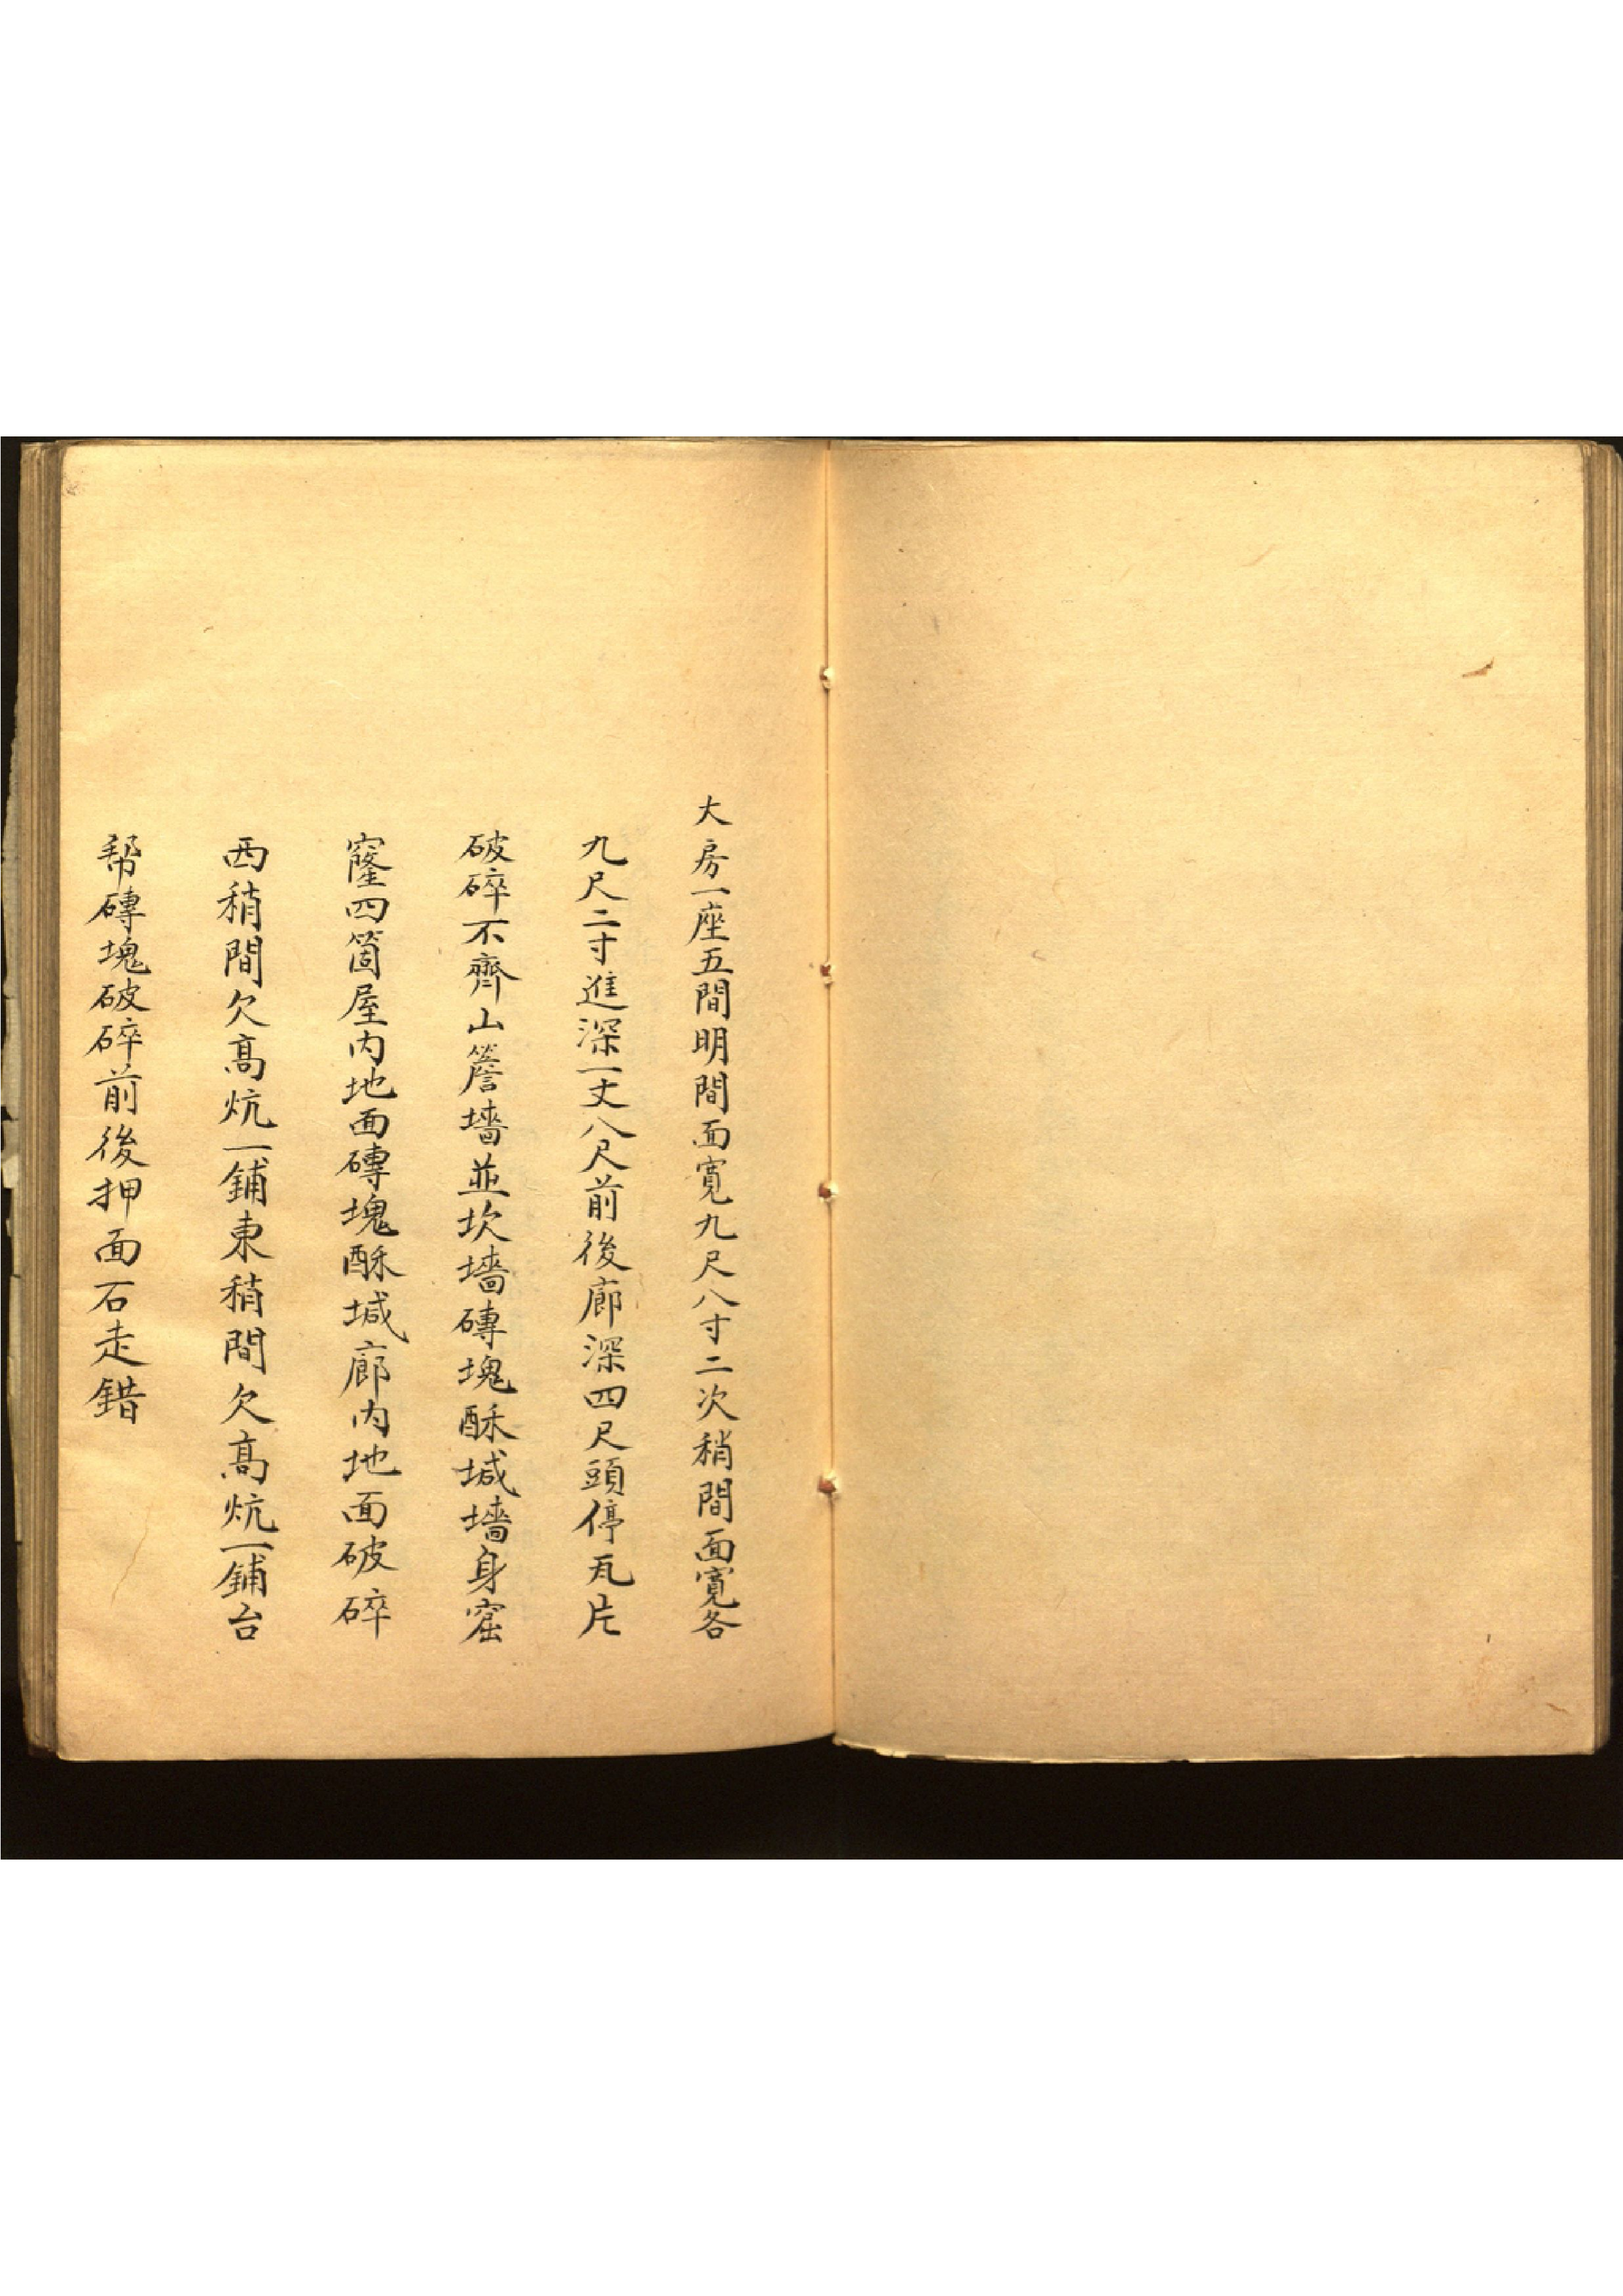 大房一座五間明間面寬九尺八寸二次稍間面寬各
九尺二寸進深一丈八尺前後廊深四尺頭停瓦片
破碎不齊山簷墻並坎墻磚塊酥堿墻身窟
窿四箇屋内地面磚塊酥堿廊内地面破碎
西稍間欠高炕一鋪東稍間欠高炕一鋪台
幇磚塊破碎前後押面石走錯